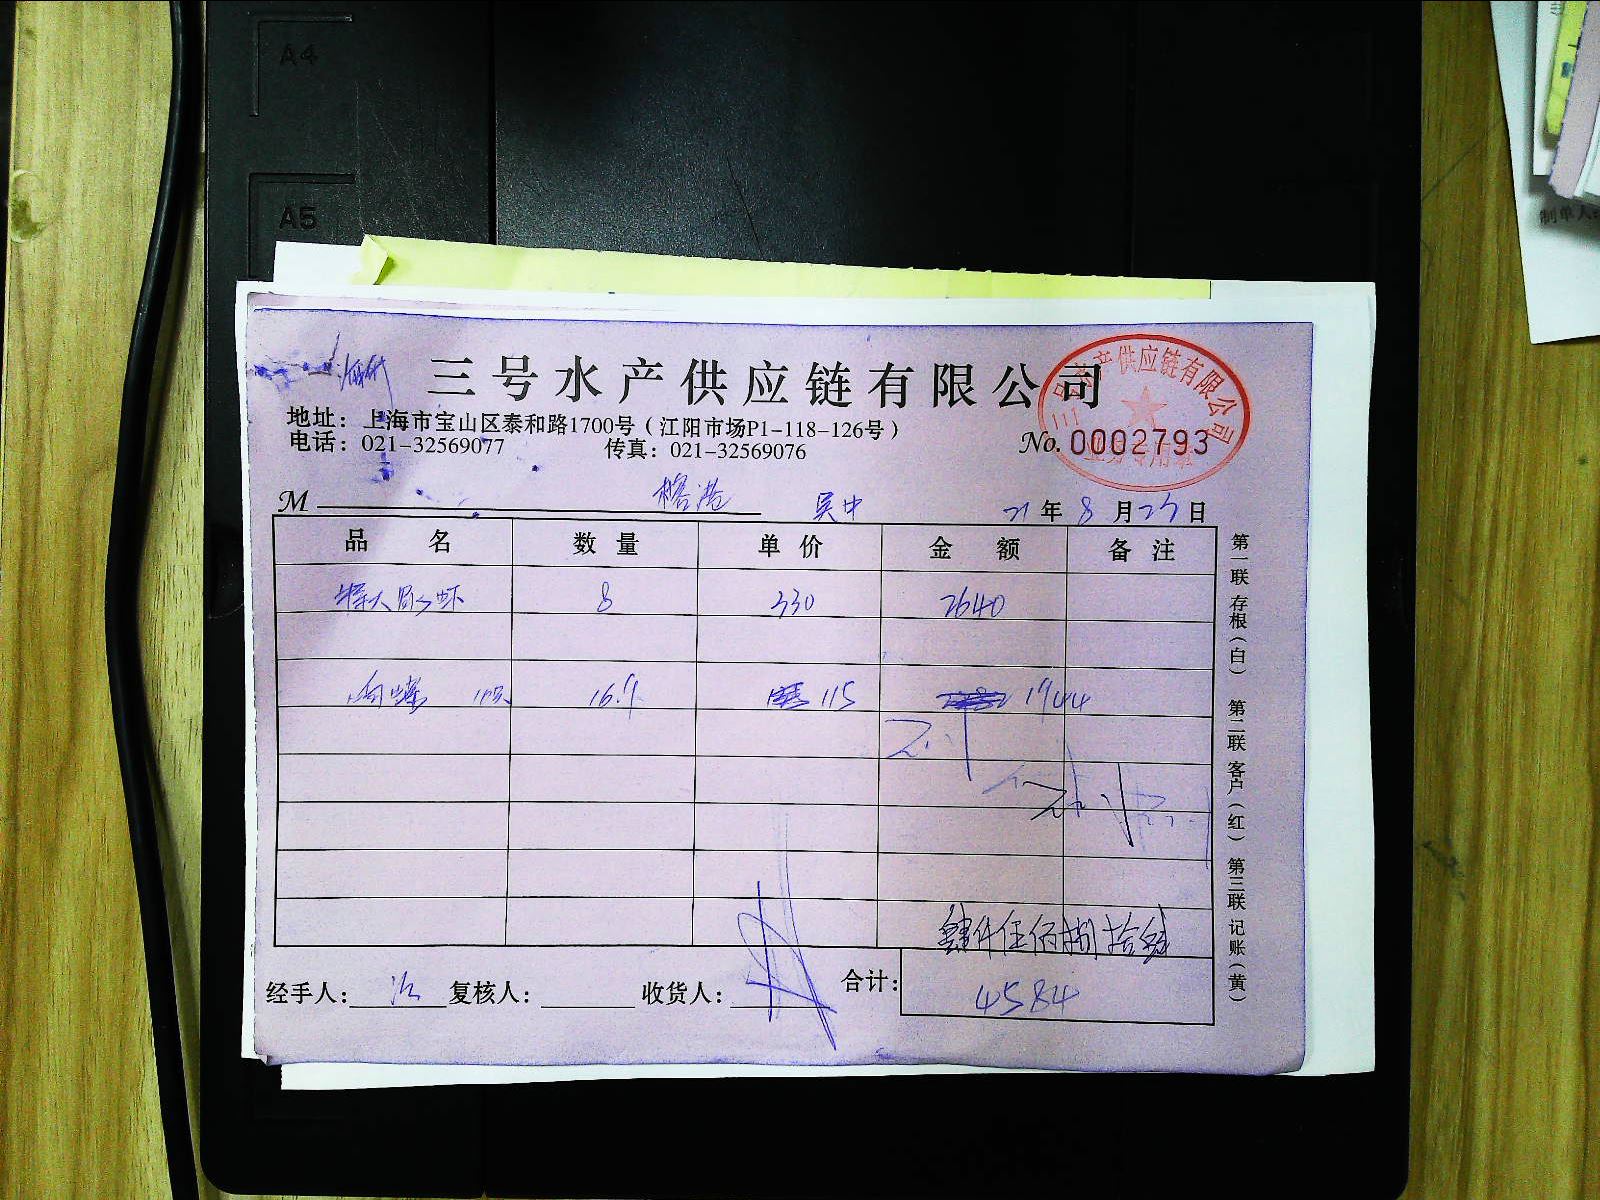 A4
A5
制单人:
三号水产供应链有限公司
地址：上海市宝山区泰和路1700号（江阳市场P1-118-126号）
电话：021-32569077 传真：021-32569076
水产供应链有限公司
No. 0002793
M 榕港 吴中 21年8月25日
品名 数量 单价 金额 备注
特大 虾 8 330 2640
响螺 16.9 115 1944
肆仟伍佰捌拾肆
经手人： 复核人： 收货人： 合计： 4584
第一联 存根（白） 第二联 客户（红） 第三联 记账（黄）